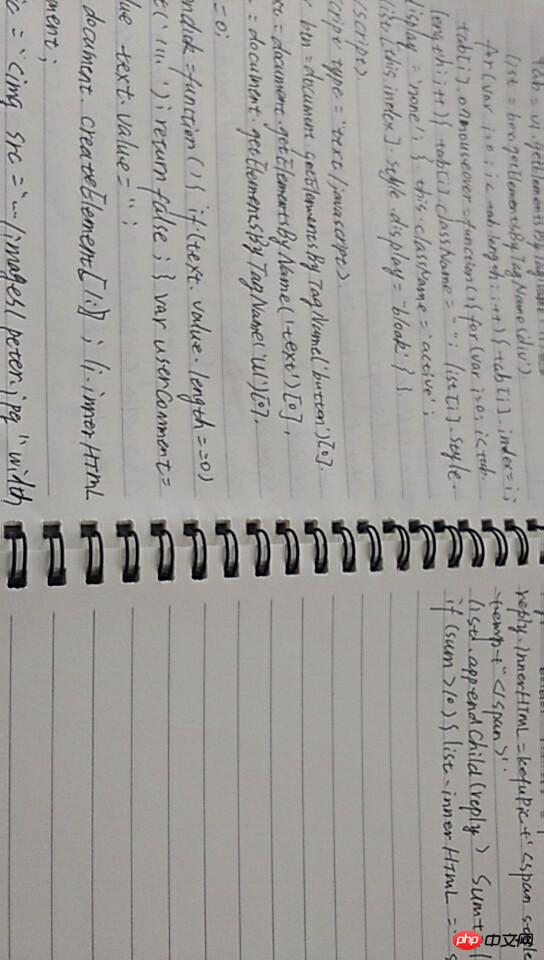 tab = ul.getElementsByTagName
list = box.getElementsByTagName(div').
for(var i=0; i<tab.length; i++){ tab[i].index=i;
tab[i].onmouseover=function(){ for(var i=0; i<tab.
length; i++){ tab[i].className = ' '; list[i].style.
display = 'none'; } this.className = 'active';
list[this.index].style.display = 'bloak' } }
/script>
cript type = "text/javascript>.
btn = document.getElementsByTagName('button')[0].
= document.getElementsByName('text')[0],
= document.getElementsByTagName('ul')[0].
=0;
onclick = function(){ if(text.value.length==0)
'); return false; } var userComment=
text.value = '';
document.createElement[li]; li.innerHTML
ment;
ic = '<img src = "../images/peter.jpg" width
reply.innerHTML = kefuPic+'<span style
temp+'</span>'.
list.appendChild(reply) sum+
if(sum>10){ list.innerHTML = '
php中文网